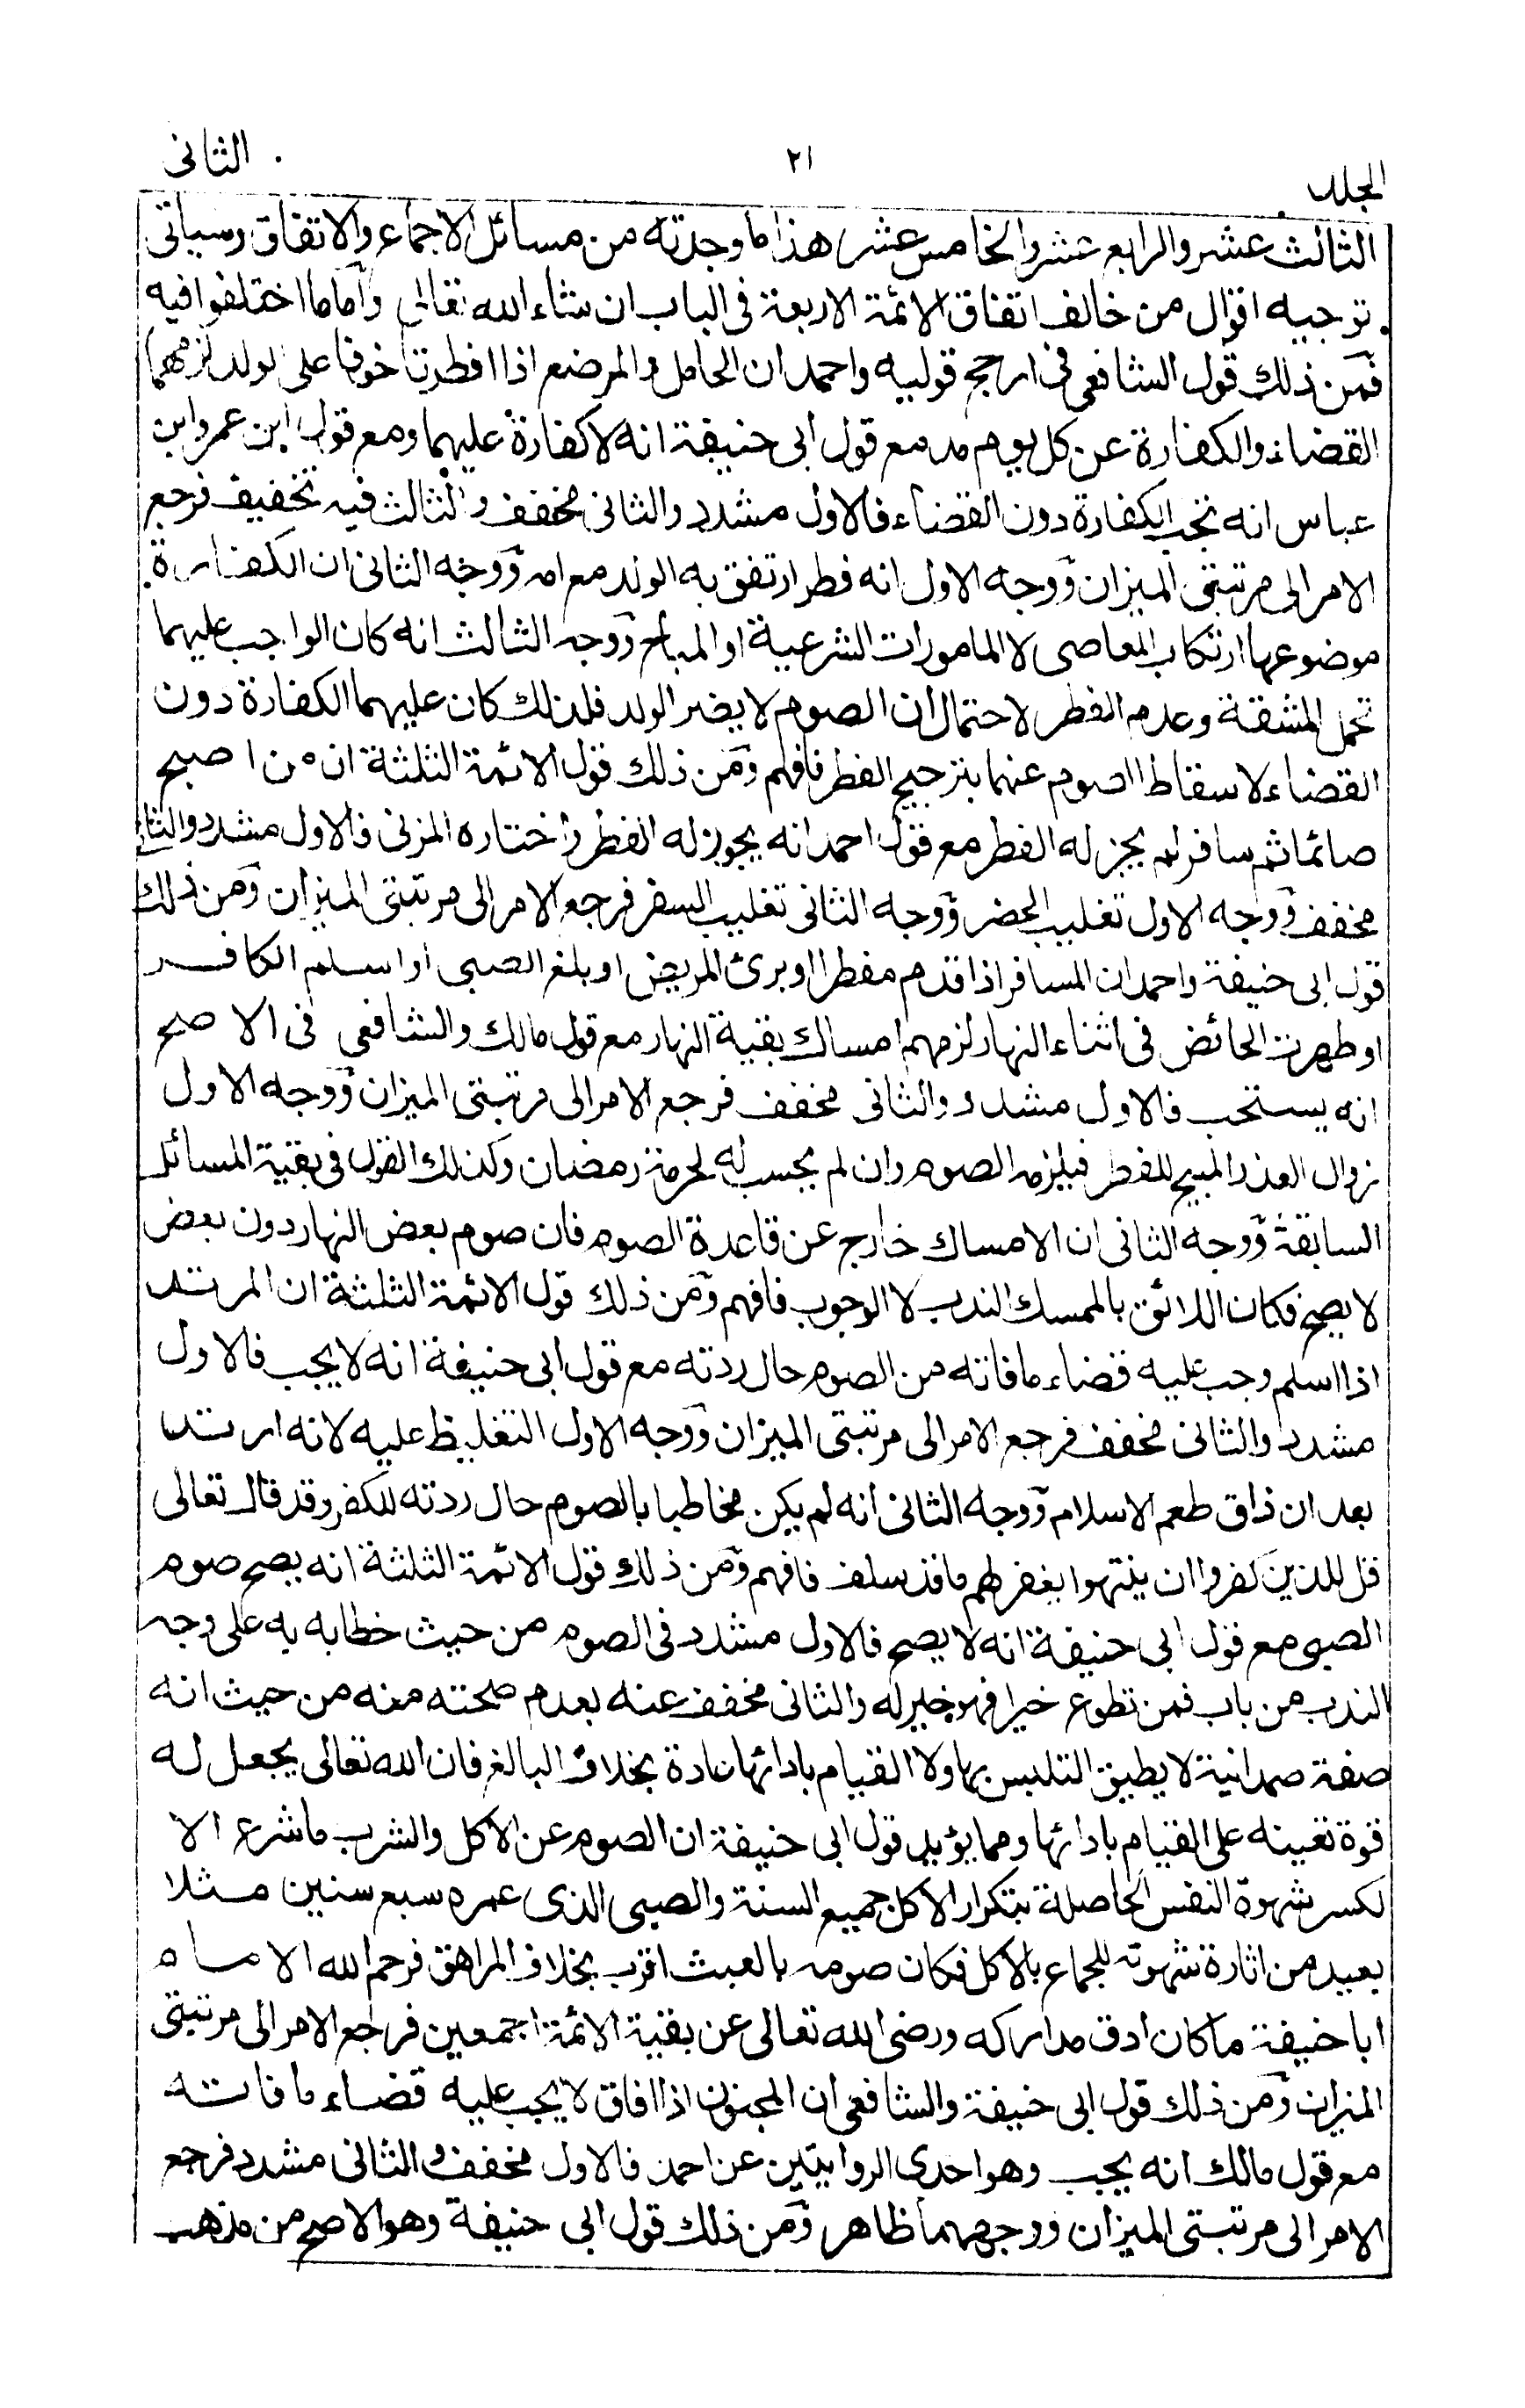 المجلد
٢١
الثانى
الثالث عشر والرابع عشر والخامس عشر هذا ما وجدته من مسائل الاجماع والاتفاق وسياتى
توجيه اقوال من خالف اتفاق الائمة الاربعة فى الباب ان شاء الله تعالى وأما ما اختلفوا فيه
فمن ذلك قول الشافعى فى ارجح قوليه واحمد ان الحامل والمرضع اذا افطرتا خوفا على الولد لزمهما
القضاء والكفارة عن كل يوم مد مع قول ابى حنيفة انه لا كفارة عليهما ومع قول ابن عمر وابن
عباس انه تجب الكفارة دون القضاء فالاول مشدد والثانى مخفف والثالث فيه تخفيف فرجع
الامر الى مرتبتى الميزان ووجه الاول انه فطر ارتفق به الولد مع امه ووجه الثانى ان الكفارة
موضوعها ارتكاب المعاصى لا المامورات الشرعية او المباح ووجه الثالث انه كان الواجب عليهما
تحمل المشقة وعدم الفطر لاحتمال ان الصوم لا يضر الولد فلذلك كان عليهما الكفارة دون
القضاء لاسقاط الصوم عنهما بترجيح الفطر فافهم ومن ذلك قول الائمة الثلثة ان من اصبح
صائما ثم سافر لم يجز له الفطر مع قول احمد انه يجوز له الفطر واختاره المزنى فالاول مشدد والثانى
مخفف ووجه الاول تغليب الحضر ووجه الثانى تغليب السفر فرجع الامر الى مرتبتى الميزان ومن ذلك
قول ابى حنيفة واحمد ان المسافر اذا قدم مفطرا او برئ المريض او بلغ الصبى او اسلم الكافر
او طهرت الحائض فى اثناء النهار لزمهم امساك بقية النهار مع قول مالك والشافعى فى الاصح
انه يستحب فالاول مشدد والثانى مخفف فرجع الامر الى مرتبتى الميزان ووجه الاول
زوال العذر المبيح للفطر فيلزمه الصوم وان لم يحسب له لحرمة رمضان وكذلك القول فى بقية المسائل
السابقة ووجه الثانى ان الامساك خارج عن قاعدة الصوم فان صوم بعض النهار دون بعض
لا يصح فكان اللائق بالممسك الندب لا الوجوب فافهم ومن ذلك قول الائمة الثلثة ان المرتد
اذا اسلم وجب عليه قضاء ما فاته من الصوم حال ردته مع قول ابى حنيفة انه لا يجب فالاول
مشدد والثانى مخفف فرجع الامر الى مرتبتى الميزان ووجه الاول التغليظ عليه لانه ارتد
بعد ان ذاق طعم الاسلام ووجه الثانى انه لم يكن مخاطبا بالصوم حال ردته للكفر وقد قال تعالى
قل للذين كفروا ان ينتهوا يغفر لهم ما قد سلف فافهم ومن ذلك قول الائمة الثلثة انه يصح صوم
الصبى مع قول ابى حنيفة انه لا يصح فالاول مشدد فى الصوم من حيث خطابه به على وجه
الندب من باب فمن تطوع خيرا فهو خير له والثانى مخفف عنه بعدم صحته منه من حيث انه
صفة صمدانية لا يطيق التلبس بها ولا القيام بادائها عادة بخلاف البالغ فان الله تعالى يجعل له
قوة تعينه على القيام بادائها ومما يؤيد قول ابى حنيفة ان الصوم عن الاكل والشرب ما شرع الا
لكسر شهوة النفس الحاصلة بتكرار الاكل جميع السنة والصبى الذى عمره سبع سنين مثلا
بعيد من اثارة شهوته للجماع بالاكل فكان صومه بالعبث اقرب بخلاف المراهق فرحم الله الامام
ابا حنيفة ما كان ادق مداركه ورضى الله تعالى عن بقية الائمة اجمعين فراجع الامر الى مرتبتى
الميزان ومن ذلك قول ابى حنيفة والشافعى ان المجنون اذا افاق لا يجب عليه قضاء ما فاته
مع قول مالك انه يجب وهو احدى الروايتين عن احمد فالاول مخفف والثانى مشدد فرجع
الامر الى مرتبتى الميزان ووجههما ظاهر ومن ذلك قول ابى حنيفة وهو الاصح من مذهب